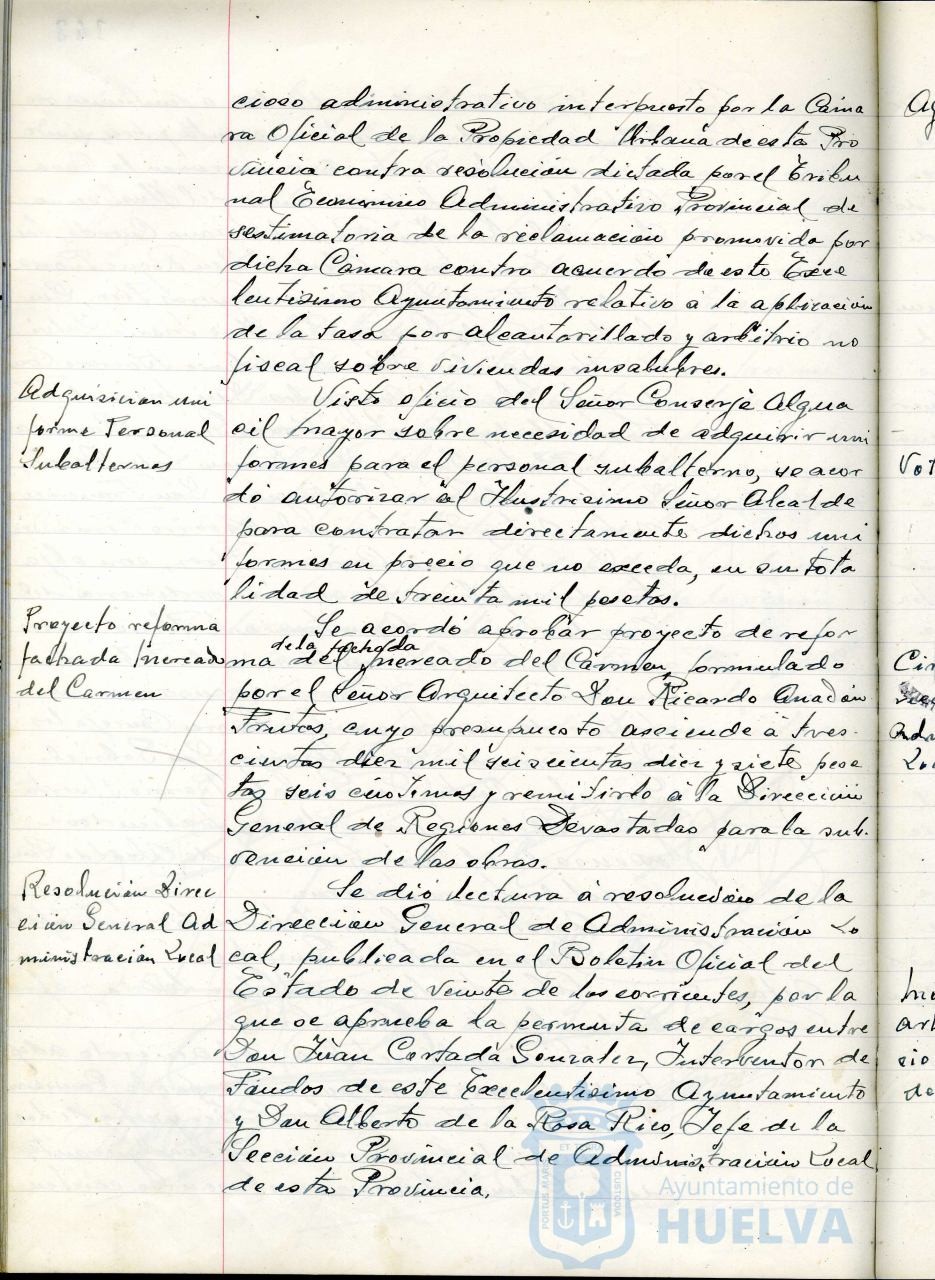 cioso administrativo interpuesto por la Cáma
ra Oficial de la Propiedad Urbana de esta Pro
vincia contra resolución dictada por el Tribu
nal Económico Administrativo Provincial de
sestimatoria de la reclamación promovida por
dicha Cámara contra acuerdo de este Exce
lentísimo Ayuntamiento relativo a la aplicación
de la tasa por alcantarillado y arbitrio no
fiscal sobre viviendas insalubres.
Adquisición uni
forme Personal
Subalternos
Visto oficio del Señor Conserje Algua
cil mayor sobre necesidad de adquirir uni
formes para el personal subalterno, se acor
dó autorizar al Ilustrísimo Señor Alcalde
para contratar directamente dichos uni
formes en precio que no exceda, en su tota
lidad de treinta mil pesetas.
Proyecto reforma
fachada mercado
del Carmen
Se acordó aprobar proyecto de refor
de la fachada
ma del mercado del Carmen, formulado
por el Señor Arquitecto Don Ricardo Anadón
Frutos, cuyo presupuesto asciende a tres-
cientas diez mil seiscientas diez y siete pese
tas seis céntimos y remitirlo a la Dirección
General de Regiones Devastadas para la sub-
vención de las obras.
Resolución Direc
ción General Ad
ministración Local
Se dió lectura a resolución de la
Dirección General de Administración Lo
cal, publicada en el Boletín Oficial del
Estado de veinte de los corrientes, por la
que se aprueba la permuta de cargos entre
Don Juan Cortada Gonzalez, Interventor de
Fondos de este Excelentísimo Ayuntamiento
y Don Alberto de la Rosa Rico, Jefe de la
Sección Provincial de Administración Local
de esta Provincia.
PORTUS MARIS ET TERRAE CUSTODIA
Ayuntamiento de
HUELVA